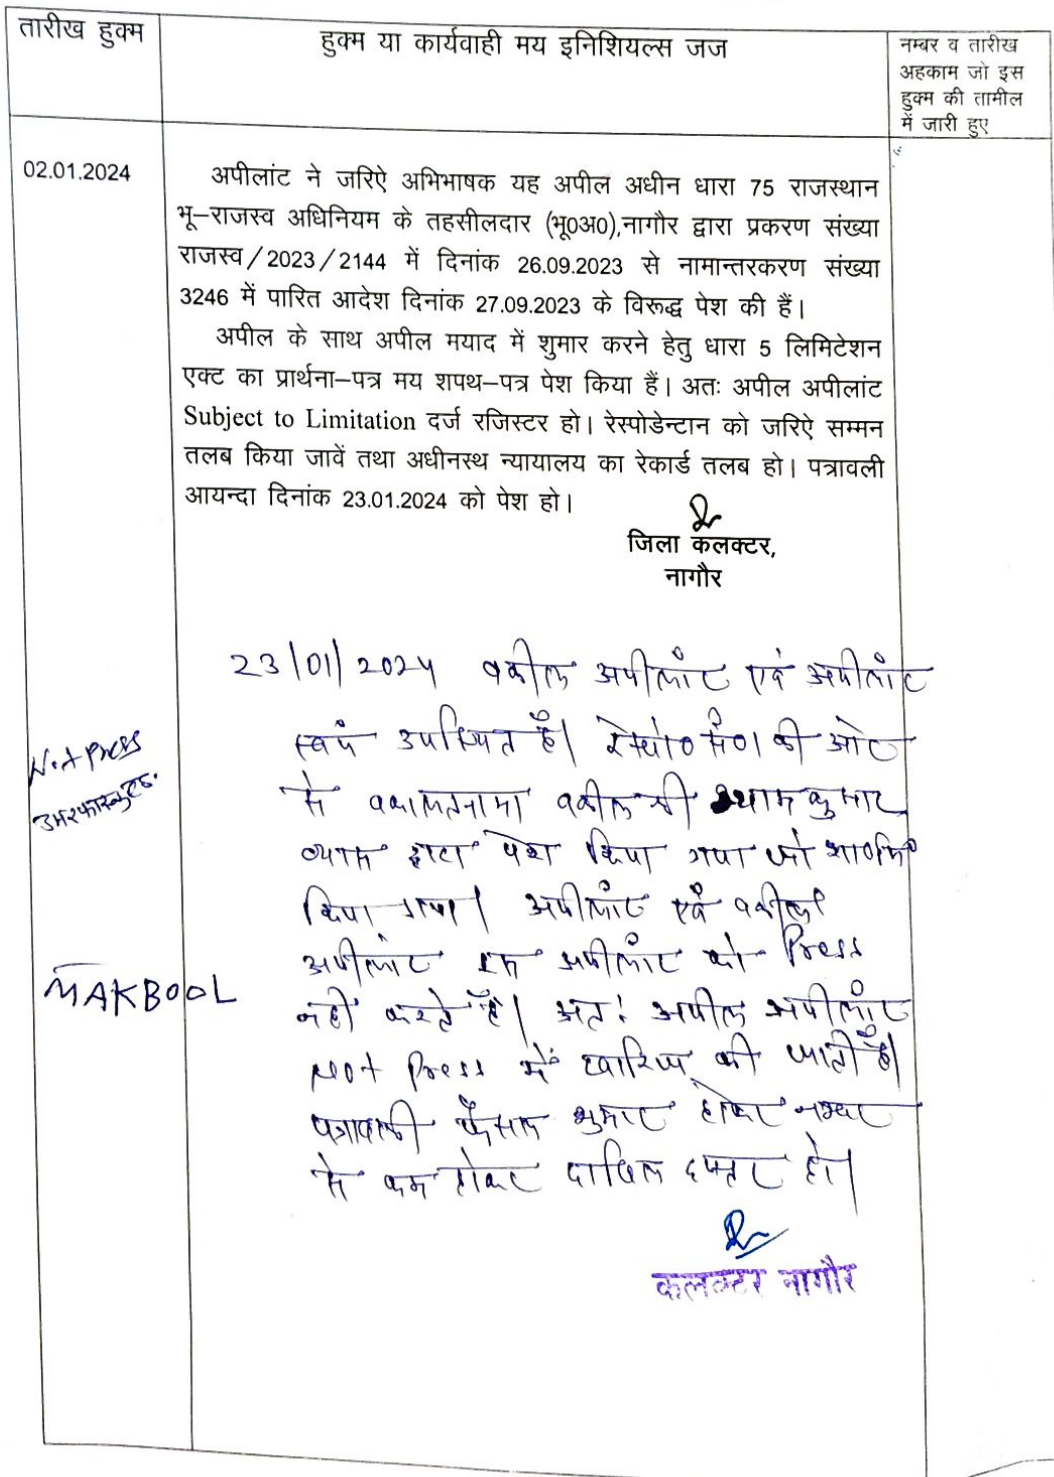 तारीख हुक्म
हुक्म या कार्यवाही मय इनिशियल्स जज
नम्बर व तारीख
अहकाम जो इस
हुक्म की तामील
में जारी हुए
02.01.2024
अपीलांट ने जरिऐ अभिभाषक यह अपील अधीन धारा 75 राजस्थान
भू–राजस्व अधिनियम के तहसीलदार (भू0अ0),नागौर द्वारा प्रकरण संख्या
राजस्व/2023/2144 में दिनांक 26.09.2023 से नामान्तरकरण संख्या
3246 में पारित आदेश दिनांक 27.09.2023 के विरूद्ध पेश की हैं।
अपील के साथ अपील मयाद में शुमार करने हेतु धारा 5 लिमिटेशन
एक्ट का प्रार्थना–पत्र मय शपथ–पत्र पेश किया हैं। अतः अपील अपीलांट
Subject to Limitation दर्ज रजिस्टर हो। रेस्पोडेन्टान को जरिऐ सम्मन
तलब किया जावें तथा अधीनस्थ न्यायालय का रेकार्ड तलब हो। पत्रावली
आयन्दा दिनांक 23.01.2024 को पेश हो।
जिला कलक्टर,
नागौर
23/01/2024 वकील अपीलांट एवं अपीलांट
स्वयं उपस्थित हैं। रेस्पो0 सं01 की ओर
से वकालतनामा वकील श्री श्याम कुमार
व्यास द्वारा पेश किया गया जो शामिल
किया गया। अपीलांट एवं वकील
अपीलांट अपीलांट को Press
नहीं करते हैं। अतः अपील अपीलांट
Not Press में खारिज की जाती है।
पत्रावली फैसल शुमार होकर नम्बर
से कम होकर दाखिल दफ्तर हो।
Not press
MAKBOOL
कलक्टर नागौर